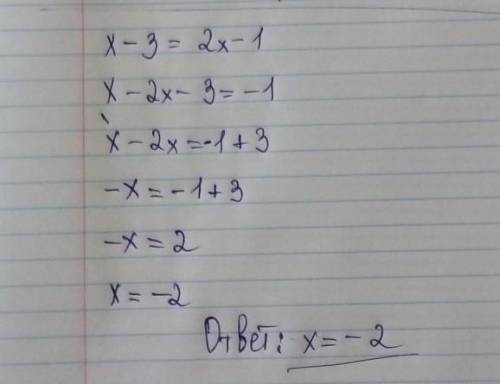 x - 3 = 2x - 1
x - 2x - 3 = -1
x - 2x = -1 + 3
-x = -1 + 3
-x = 2
x = -2
Ответ: x = -2